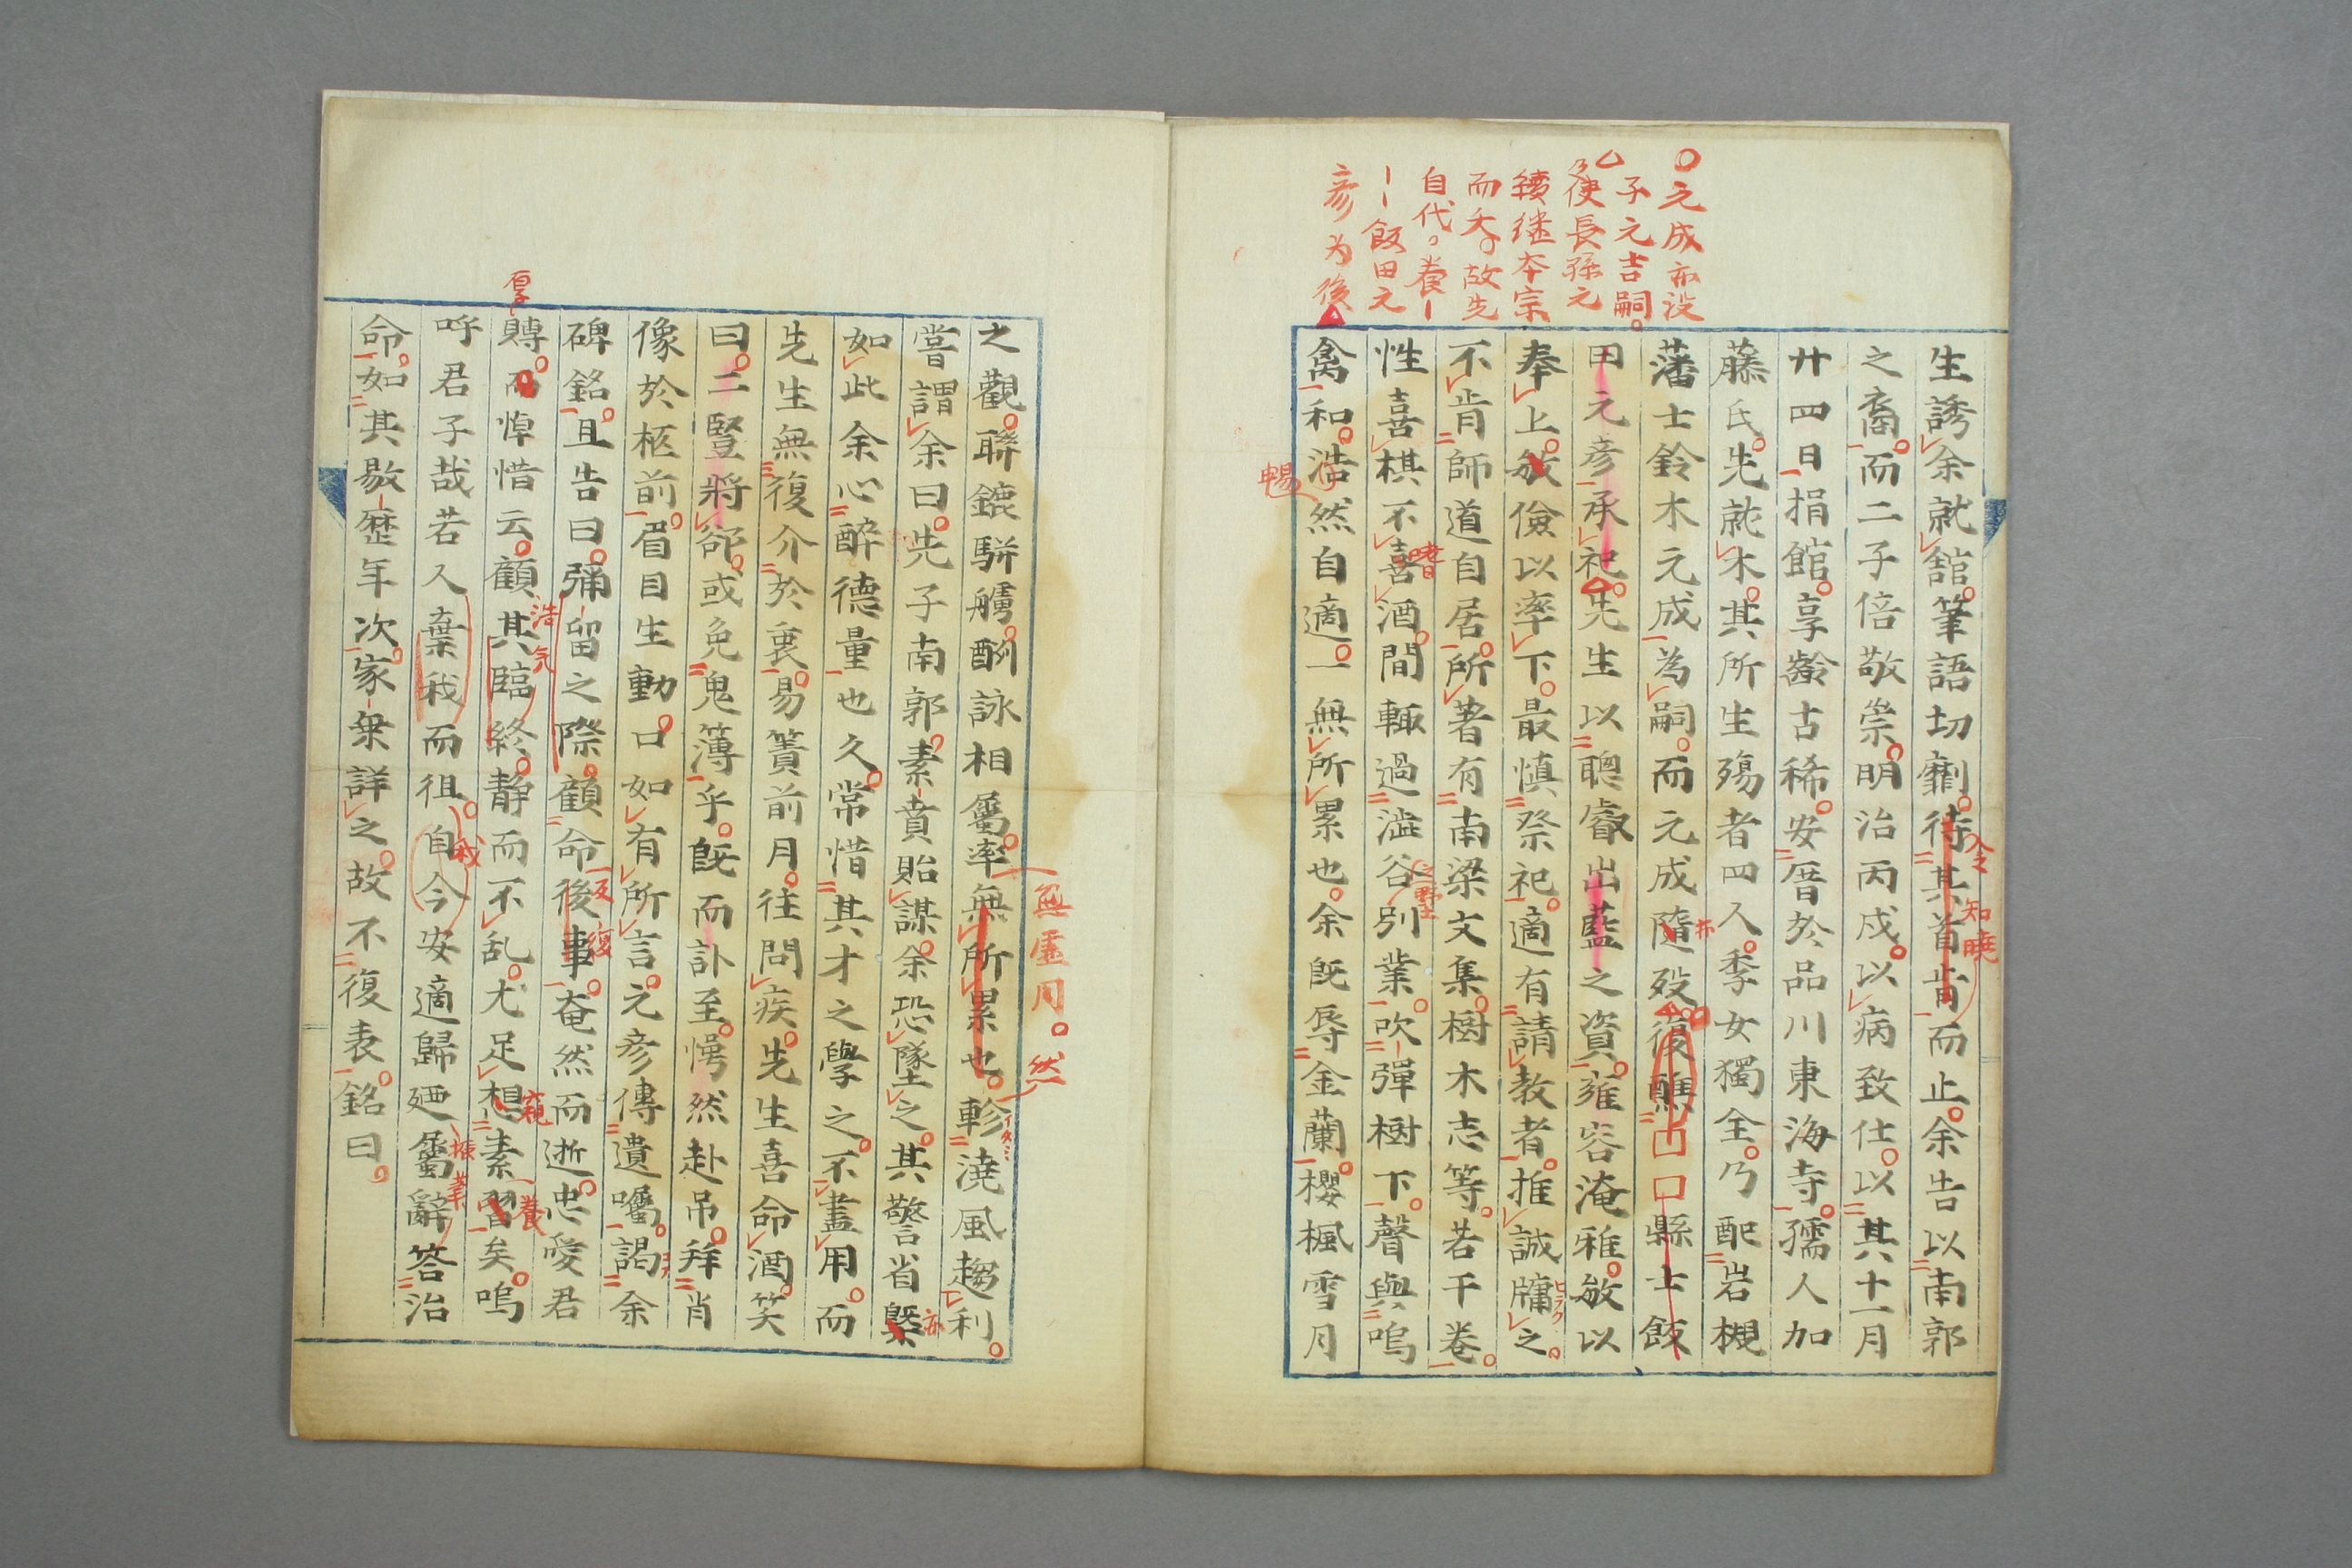 〇元成亦没
子元吉嗣。
乃使長孫元
續継本宗
而夭。故先
自代。養
飯田元
彦为後
生誘余就舘。筆語切劘。待其首肯而止。余告以南郭
令知暁
之裔。而二子倍敬崇。明治丙戌。以病致仕。以其十一月
廿四日捐館。享齢古稀。安厝於品川東海寺。孺人加
藤氏。先就木。其所生殤者四人。季女獨全。乃配岩槻
藩士鈴木元成為嗣。而元成隨歿。復醮口口縣士飯
亦
田元彦承祀。先生以聰睿出藍之資。雍容淹雅。敬以
奉上。儉以率下。最慎祭祀。適有請教者。推誠牖之。
ヒラク
不肯師道自居。所著有南梁文集。樹木志等。若干卷。
性喜棋不喜酒。間輙過澁谷別業。吹彈樹下。聲與鳴
嗜
之野
禽和。浩然自適。一無所累也。余既辱金蘭。櫻楓雪月
暢
之觀。聯鑣駢艣。酬詠相屬。率無所累也。軫澆風趨利。
無虚月。然
イタミ
嘗謂余曰。先子南郭。素賁貽謀。余恐墜之。其警省槩
亦
如此余心醉德量也久。常惜其才之學之。不盡用。而
先生無復介於衷。易簀前月。往問疾。先生喜命酒。笑
曰。二豎將郤。或免鬼簿乎。既而訃至。愕然赴吊。拜肖
像於柩前。眉目生動。口如有所言。元彦傳遺囑。謁余
碑銘。且告曰。彌留之際。顧命後事。奄然而逝。忠愛君
反復
賻。而悼惜云。顧其臨終。靜而不乱。尤足想素習矣。嗚
厚
浩気
窺
養
呼君子哉若人棄我而徂。自今安適歸廼屬辭答治
我
振筆
命。如其敭歴年次。家乗詳之。故不復表。銘曰。